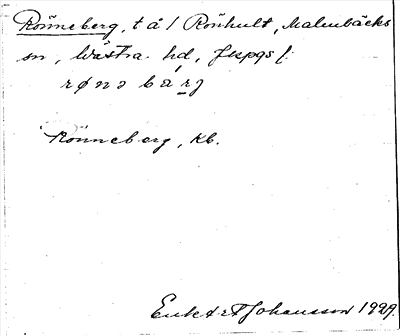 Rönneberg, t å / Rönhult, Malmbäcks
sn, Västra hd, Jkpgs l:
rønə bárj
Rönneberg, kb.
Enl. A. R. F. Johansson 1929.